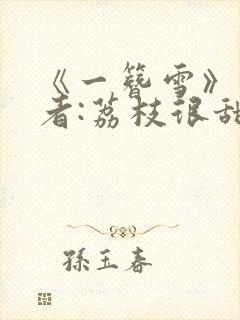 《一簪雪》
者:荔枝很甜
孫玉春